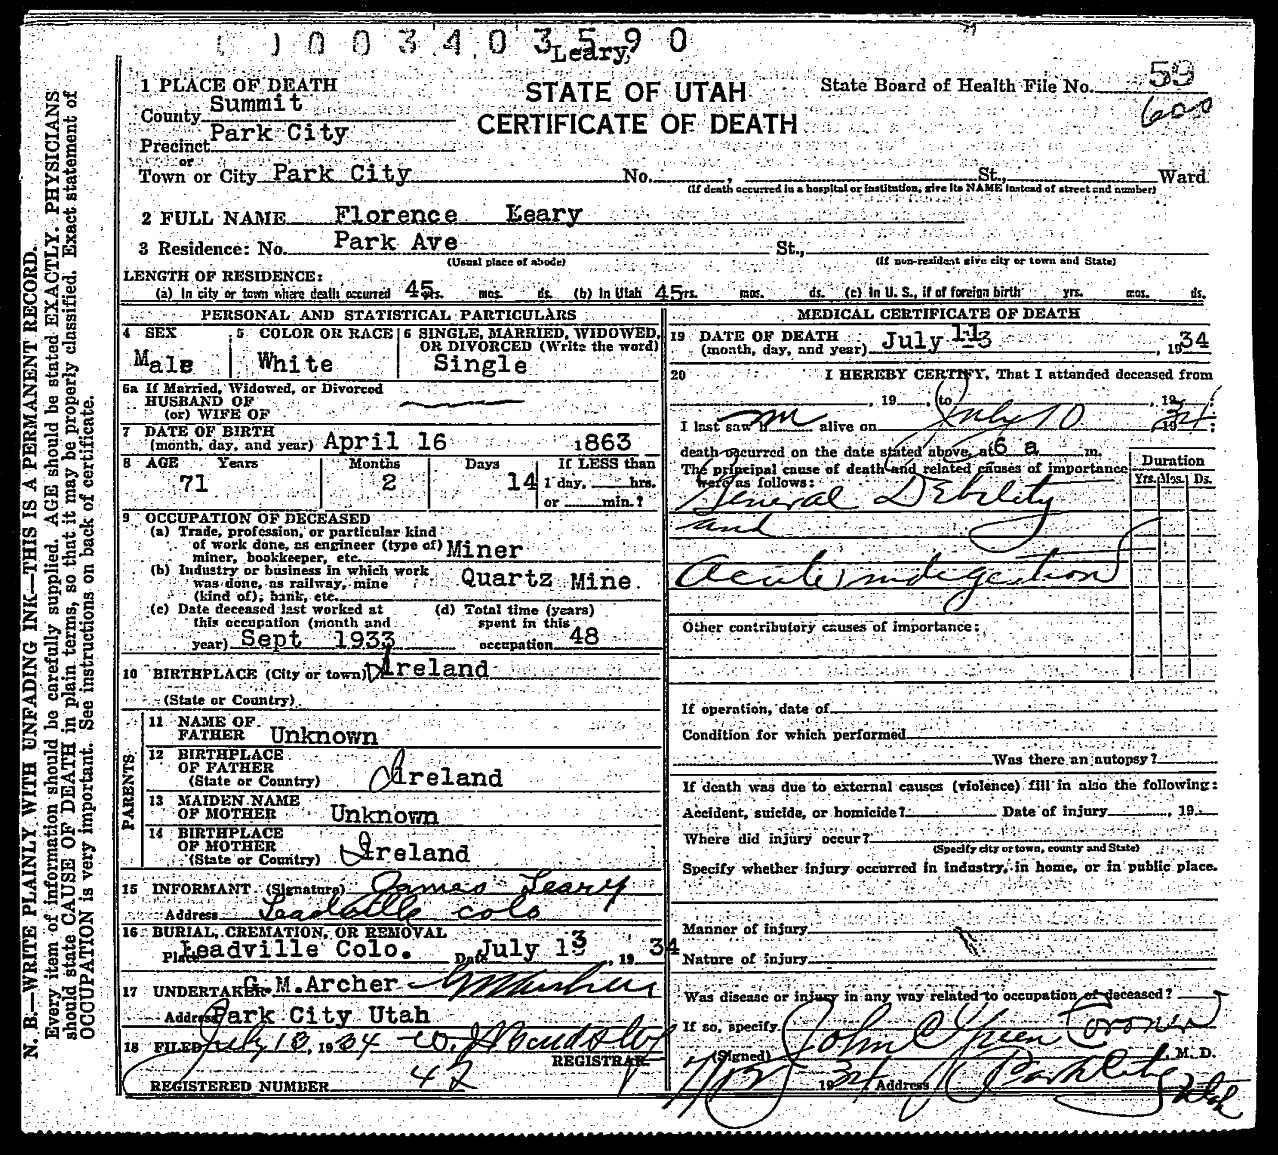 0 0 3 4 0 3 5 9 0
Leary,
1 PLACE OF DEATH
County Summit
Precinct Park City
or
Town or City Park City No. , St., Ward
(If death occurred in a hospital or institution, give its NAME instead of street and number)
STATE OF UTAH
CERTIFICATE OF DEATH
State Board of Health File No. 59
600
2 FULL NAME Florence Leary
3 Residence: No. Park Ave St.,
(Usual place of abode) (If non-resident give city or town and State)
LENGTH OF RESIDENCE:
(a) In city or town where death occurred 45 yrs. mos. ds. (b) In Utah 45 yrs. mos. ds. (c) In U. S., if of foreign birth yrs. mos. ds.
PERSONAL AND STATISTICAL PARTICULARS
4 SEX
Male
5 COLOR OR RACE
White
6 SINGLE, MARRIED, WIDOWED,
OR DIVORCED (Write the word)
Single
6a If Married, Widowed, or Divorced
HUSBAND OF
(or) WIFE OF
7 DATE OF BIRTH
(month, day, and year) April 16 1863
8 AGE Years Months Days If LESS than
71 2 14 1 day, hrs.
or min.?
9 OCCUPATION OF DECEASED
(a) Trade, profession, or particular kind
of work done, as engineer (type of)
miner, bookkeeper, etc. Miner
(b) Industry or business in which work
was done, as railway, mine
(kind of); bank, etc. Quartz Mine.
(c) Date deceased last worked at
this occupation (month and
year) Sept 1933
(d) Total time (years)
spent in this
occupation 48
10 BIRTHPLACE (City or town) Ireland
(State or Country)
PARENTS
11 NAME OF
FATHER Unknown
12 BIRTHPLACE
OF FATHER
(State or Country) Ireland
13 MAIDEN NAME
OF MOTHER Unknown
14 BIRTHPLACE
OF MOTHER
(State or Country) Ireland
15 INFORMANT (Signature) James Leary
Address Leadville Colo
16 BURIAL, CREMATION, OR REMOVAL
Place Leadville Colo. Date July 13, 1934
17 UNDERTAKER G.M.Archer G M Archer
Address Park City Utah
18 FILED July 13, 1934
REGISTRAR
REGISTERED NUMBER 42
MEDICAL CERTIFICATE OF DEATH
19 DATE OF DEATH
(month, day, and year) July 11 , 1934
20 I HEREBY CERTIFY, That I attended deceased from
, 19 , to , 19 ;
I last saw h im alive on July 10 , 1934;
death occurred on the date stated above, at 6 a m.
The principal cause of death and related causes of importance
were as follows:
Duration
Yrs. Mos. Ds.
General Debility
and
Acute indigestion
Other contributory causes of importance:
If operation, date of
Condition for which performed
Was there an autopsy?
If death was due to external causes (violence) fill in also the following:
Accident, suicide, or homicide? Date of injury , 19
Where did injury occur?
(Specify city or town, county and State)
Specify whether injury occurred in industry, in home, or in public place.
Manner of injury
Nature of injury
Was disease or injury in any way related to occupation of deceased?
If so, specify
(Signed) John C Green Coroner, M. D.
7/12 1934 Address Park City Utah
N. B.—WRITE PLAINLY WITH UNFADING INK—THIS IS A PERMANENT RECORD.
Every item of information should be carefully supplied. AGE should be stated EXACTLY. PHYSICIANS
should state CAUSE OF DEATH in plain terms, so that it may be properly classified. Exact statement of
OCCUPATION is very important. See instructions on back of certificate.